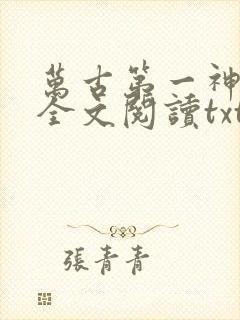 萬古第一神
全文閱讀txt
張青青